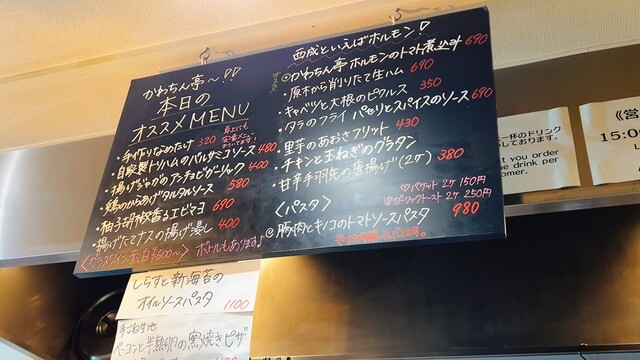 かわちん亭〜♡♡
本日の
オススメMENU
・手作りなめたけ 320
・自家製トリハムのバルサミコソース 480
・揚げじゃがのアンチョビガーリック 400
・鶏のからあげタルタルソース 580
・柚子胡椒香るエビマヨ 690
・揚げたてナスの揚げ浸し 400
<グラスワイン赤白¥600〜> ボトルもあります♪
西成といえばホルモン♡
◎かわちん亭ホルモンのトマト煮込み 690
・原木から削りたて生ハム 690
・キャベツと大根のピクルス 350
・タラのフライ パセリとスパイスのソース 690
・里芋のあおさフリット 430
・チキンと玉ねぎのグラタン
・甘辛手羽先の唐揚げ(2ヶ) 380
♡バゲット 2ヶ 150円
♡ガーリックトースト 2ヶ 250円
<パスタ>
◎豚肉とキノコのトマトソースパスタ 980
しらすと新海苔の
オイルソースパスタ 1100
手ごね生地
ベーコンと半熟卵の窯焼きピザ
一杯のドリンク
しております。
t you order
e drink per
omer.
《営
15:0